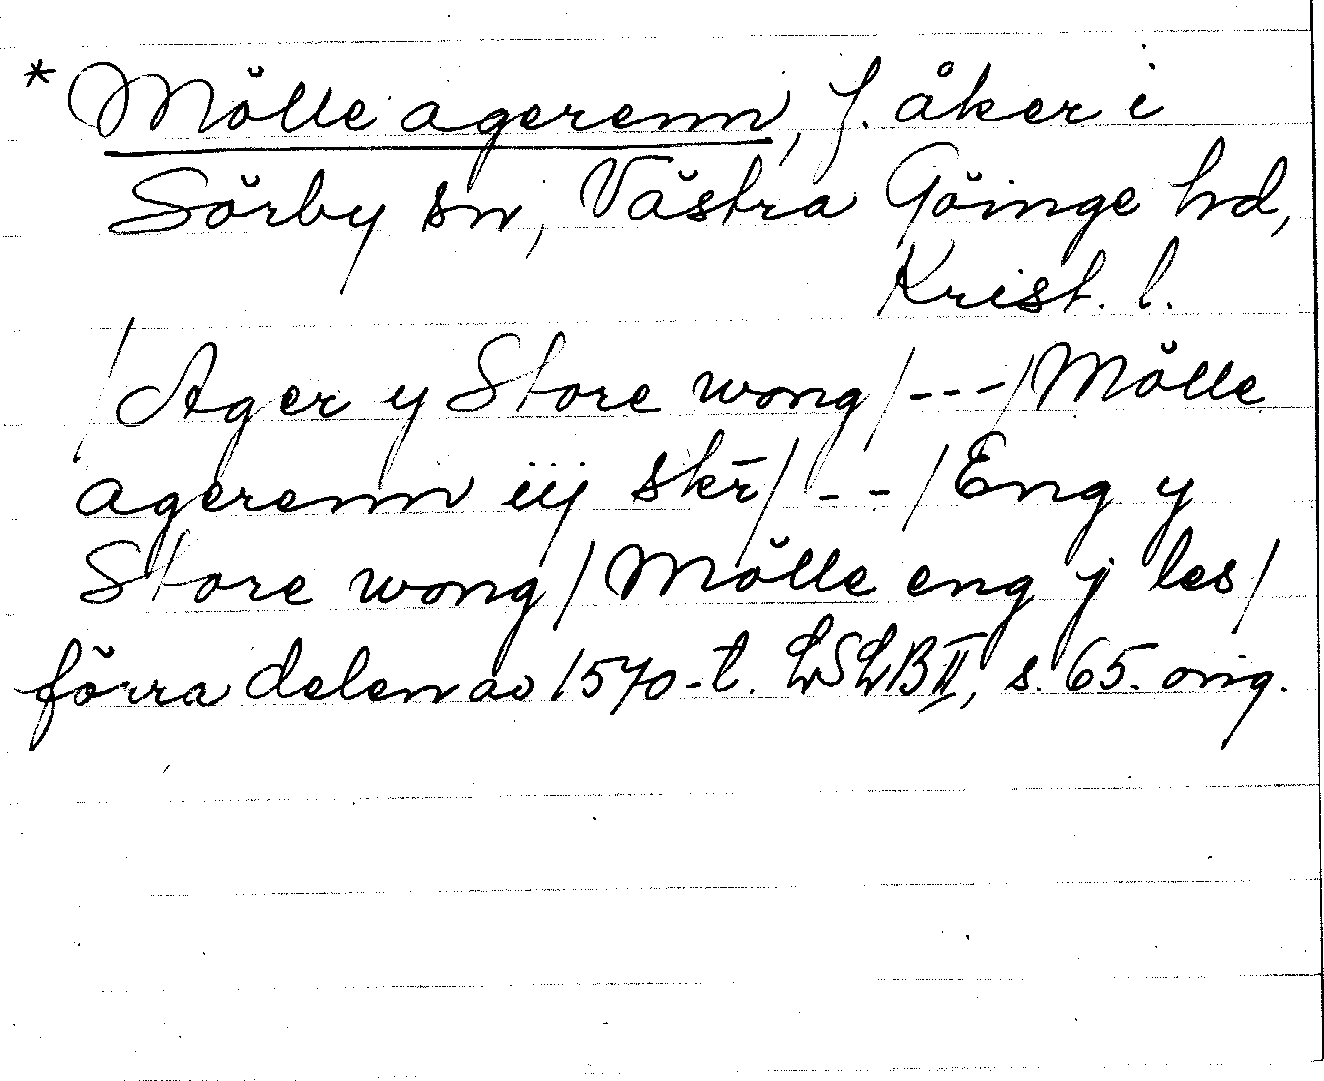 * Mölle agerenn, f. åker i
Sörby sn, Västra Göinge hd,
Krist. l.
/Ager y Store wong/---/Mölle
agerenn iij skr̄/--/Eng y
Store wong/Mölle eng j les/
förra delen av 1570-t. LSLB II, s. 65. orig.